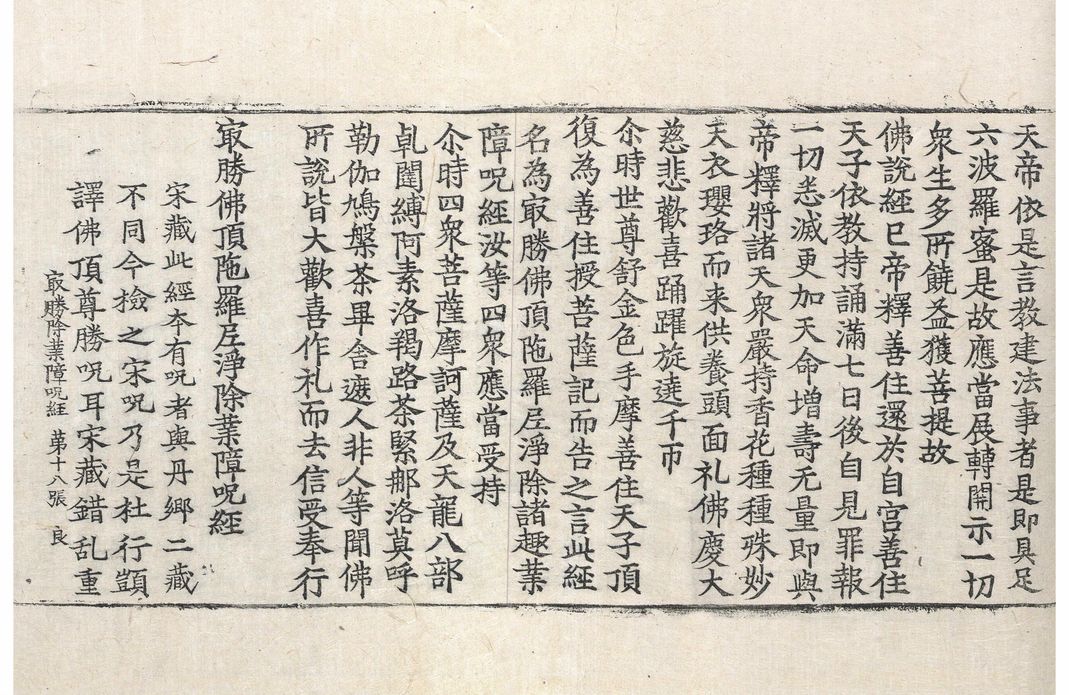 天帝依是言教建法事者是即具足
六波羅蜜是故應當展轉開示一切
衆生多所饒益獲菩提故
佛說經已帝釋善住還於自宮善住
天子依教持誦滿七日後自見罪報
一切悉滅更加天命增壽无量即與
帝釋將諸天衆嚴持香花種種殊妙
天衣瓔珞而来供養頭面礼佛慶大
慈悲歡喜踊躍旋遶千帀
尒時世尊舒金色手摩善住天子頂
復為善住授菩薩記而告之言此經
名為㝡勝佛頂陁羅尼淨除諸趣業
障呪經汝等四衆應當受持
尒時四衆菩薩摩訶薩及天龍八部
乹闥縛阿素洛羯路茶緊那洛莫呼
勒伽鳩槃茶畢舍遮人非人等聞佛
所說皆大歡喜作礼而去信受奉行
㝡勝佛頂陁羅尼淨除業障呪經
宋藏此經夲有呪者與丹鄉二藏
不同今撿之宋呪乃是杜行顗
譯佛頂尊勝呪耳宋藏錯乱重
㝡勝除業障呪經 苐十八張 良